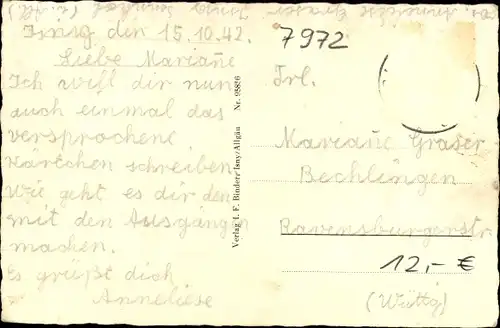 den 15.10.42.
Liebe Mariañe
Ich will dir nun
auch einmal das
versprochene
Kärtchen schreiben
Wie geht es dir den
mit den Ausgängen
machen.
Es grüßt dich
Anneliese
Verlag I. F. Binder, Isny/Allgäu Nr. 95886
7972
Frl.
Mariañe Gräser
Bechlingen
Ravensburgerstr
12,- €
(Württg)